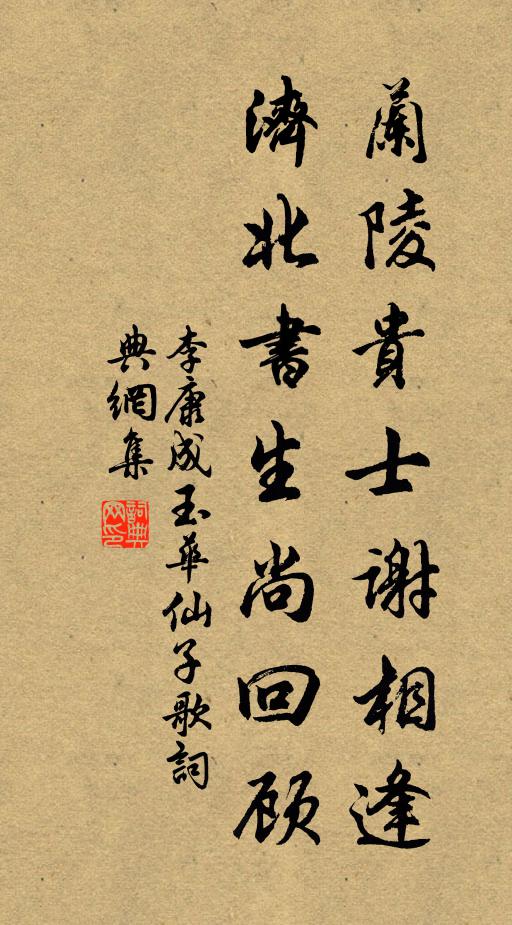 蘭陵貴士謝相逢
濟北書生尚回顾
李康成玉華仙子歌詞
典網集
詞典網印